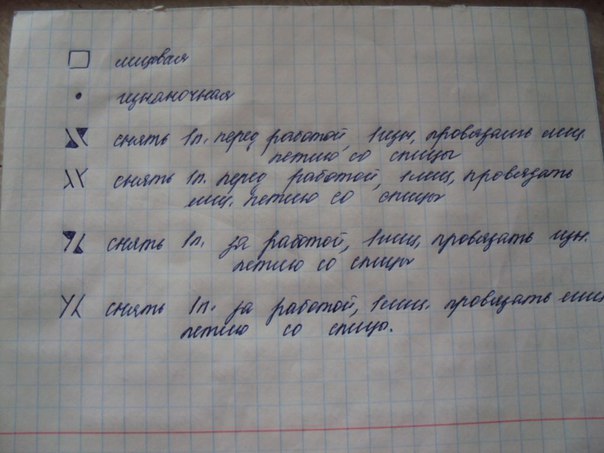 лицевая
изнаночная
снять 1п. перед работой, 1изн, провязать лиц.
петлю со спицы
снять 1п. перед работой, 1лиц, провязать
лиц. петлю со спицы
снять 1п. за работой, 1лиц, провязать изн.
петлю со спицы
снять 1п. за работой, 1лиц. провязать лиц
петлю со спицы.